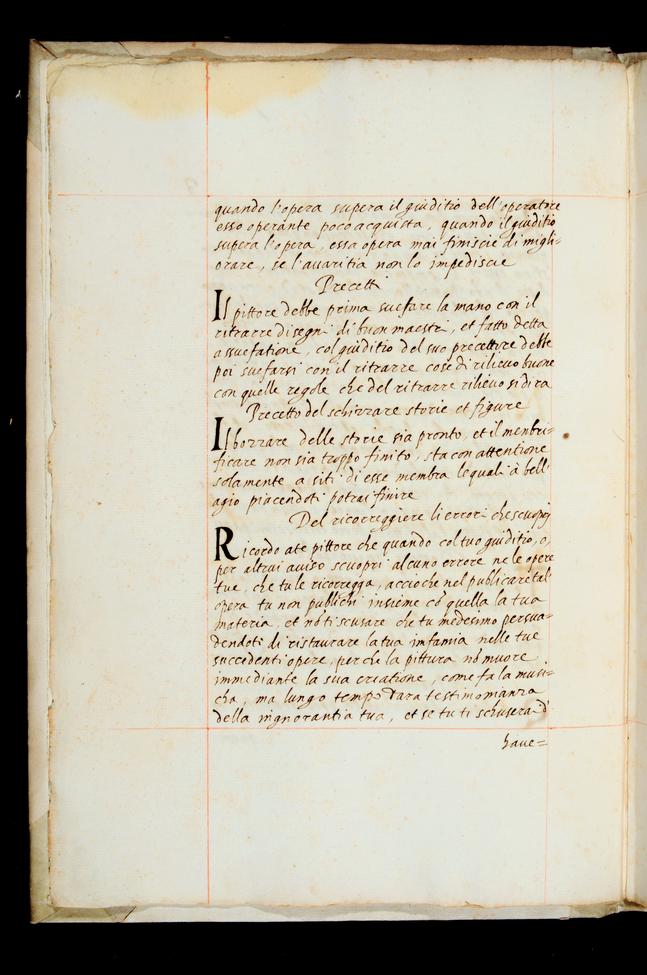 quando l'opera supera il giuditio dell'operatore
esso operante poco acquista, quando il giuditio
supera l'opera, essa opera mai finiscie di migli=
orare, se l'auaritia non lo impediscie
Precetti
Il pittore debbe prima suefare la mano con il
ritrarre disegni di buon maestri, et fatto detta
assuefatione, col giuditio del suo precettore debbe
poi suefarsi con il ritrarre cose di rilieuo buone
con quelle regole che del ritrarre rilieuo si dira
Precetto del schizzare storie et figure
Il bozzare delle storie sia pronto, et il menbri=
ficare non sia troppo finito, sta con attentione
solamente a siti di esse membra le quali à bell'
agio piacendoti potrai finire
Del ricorreggiere li errori che scuopri
Ricordo a te pittore che quando col tuo giuditio, o,
per altrui auiso scuopri alcuno errore ne le opere
tue, che tu le ricorregga, accioche nel publicare tal'
opera tu non publichi insieme cō quella la tua
materia, et nō ti scusare che tu medesimo persua=
dendoti di ristaurare la tua imfamia nelle tue
succedenti opere, perche la pittura nō muore
immediante la sua creatione, come fa la musi=
cha, ma lungo tempo dara testimonianza
della ingnorantia tua, et se tu ti schuserai d'
haue=